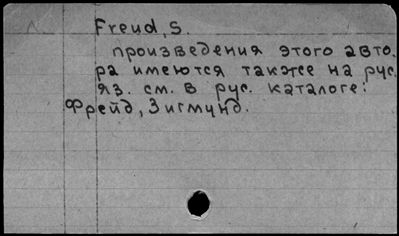 Freud, S.
произведения этого авто.
ра имеются также на рус.
яз. см. в рус. каталоге:
Фрейд, Зигмунд.